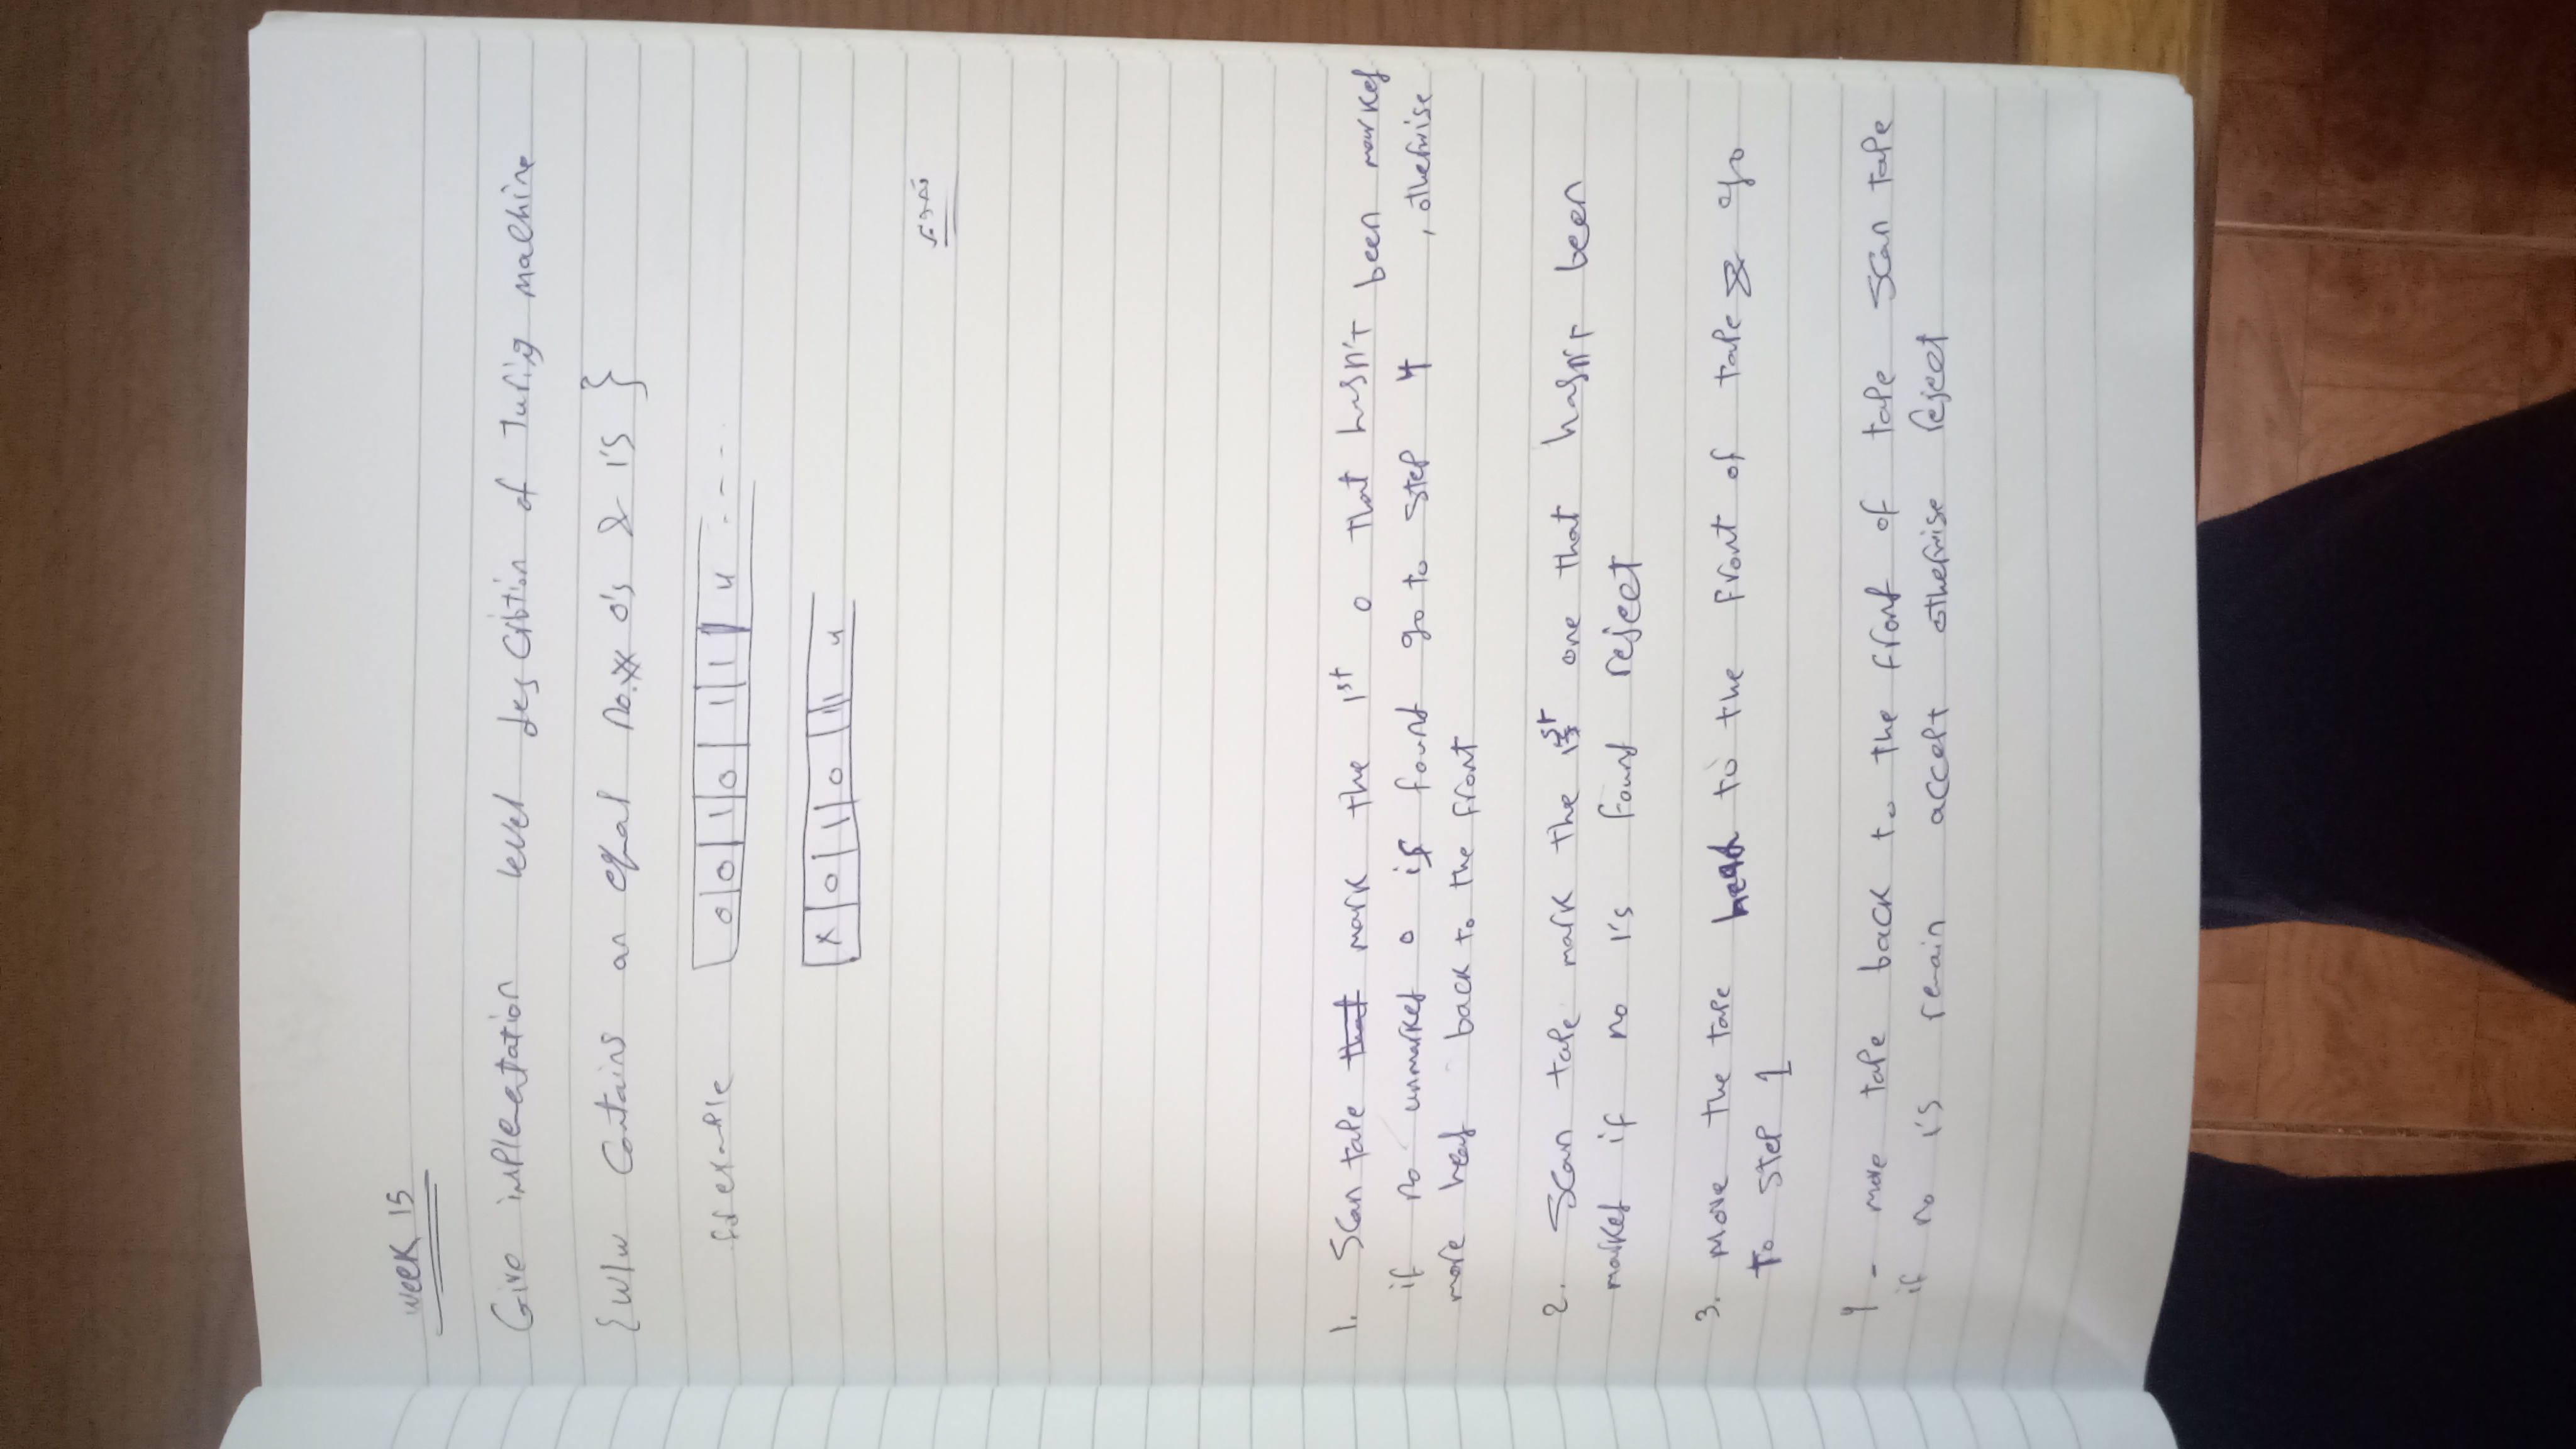 week 15
Give implementation level describtion of Turing machine
{w/w Contains an equal no. 0's & 1's }
for example 0 0 1 0 1 1 u - - -
x 0 1 0 1 1 u
1. Scan tape that mark the 1st 0 that hasn't been marked
if no unmarked 0 is found go to step 4 , otherwise
move head back to the front
2. Scan tape mark the 1st one that hasn't been
marked if no 1's found reject
3. Move the tape head to the front of tape & go
To step 1
4 - move tape back to the front of tape scan tape
if no 1's remain accept otherwise reject